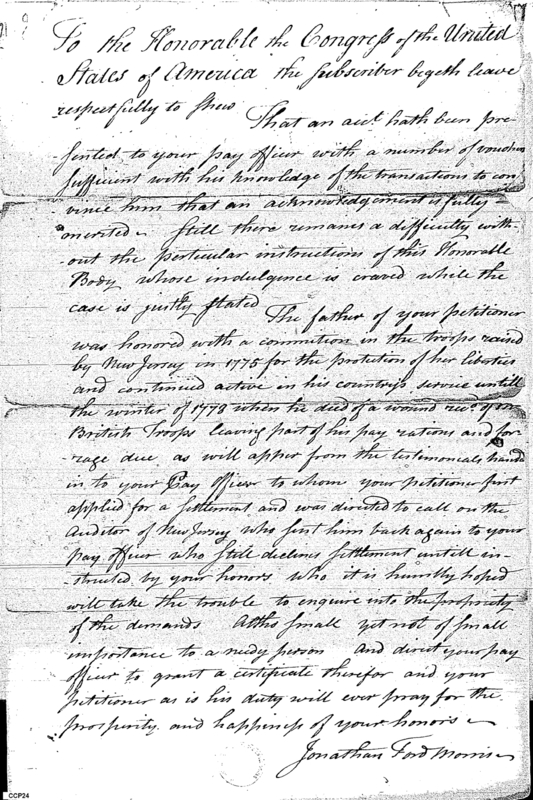 To the Honorable the Congress of the United
States of America the subscriber begeth leave
respectfully to shew
That an acct. hath been pre-
-sented to your pay officer with a number of vouchers
sufficient with his knowledge of the transactions to con-
vince him that an acknowledgement is fully
merited. Still there remanes a difficulty with-
out the perticular instructions of this Honorable
Body whose indulgence is craved while the
case is justly stated
The father of your petitioner
was honored with a commition in the troops raised
by New Jersey in 1775 for the protection of her liberties
and continued active in his countrys service untill
the winter of 1778 when he died of a wound recd. of
British Troops leaving part of his pay rations and for-
rage due as will apper from the testimonials handed
in to your Pay Officer to whom your petitioner first
applied for a settlement and was directed to call on the
Auditor of New Jersey who sent him back again to your
pay officer who still declines settlement untill in-
-structed by your honors who it is humbly hoped
will take the trouble to enquire into the propriety
of the demands Altho small yet not of small
importance to a nedy person and direct your pay
officer to grant a certificate therefor and your
petitioner as is his duty will ever pray for the
prosperity and happiness of your honors
Jonathan Ford Morris
CCP24